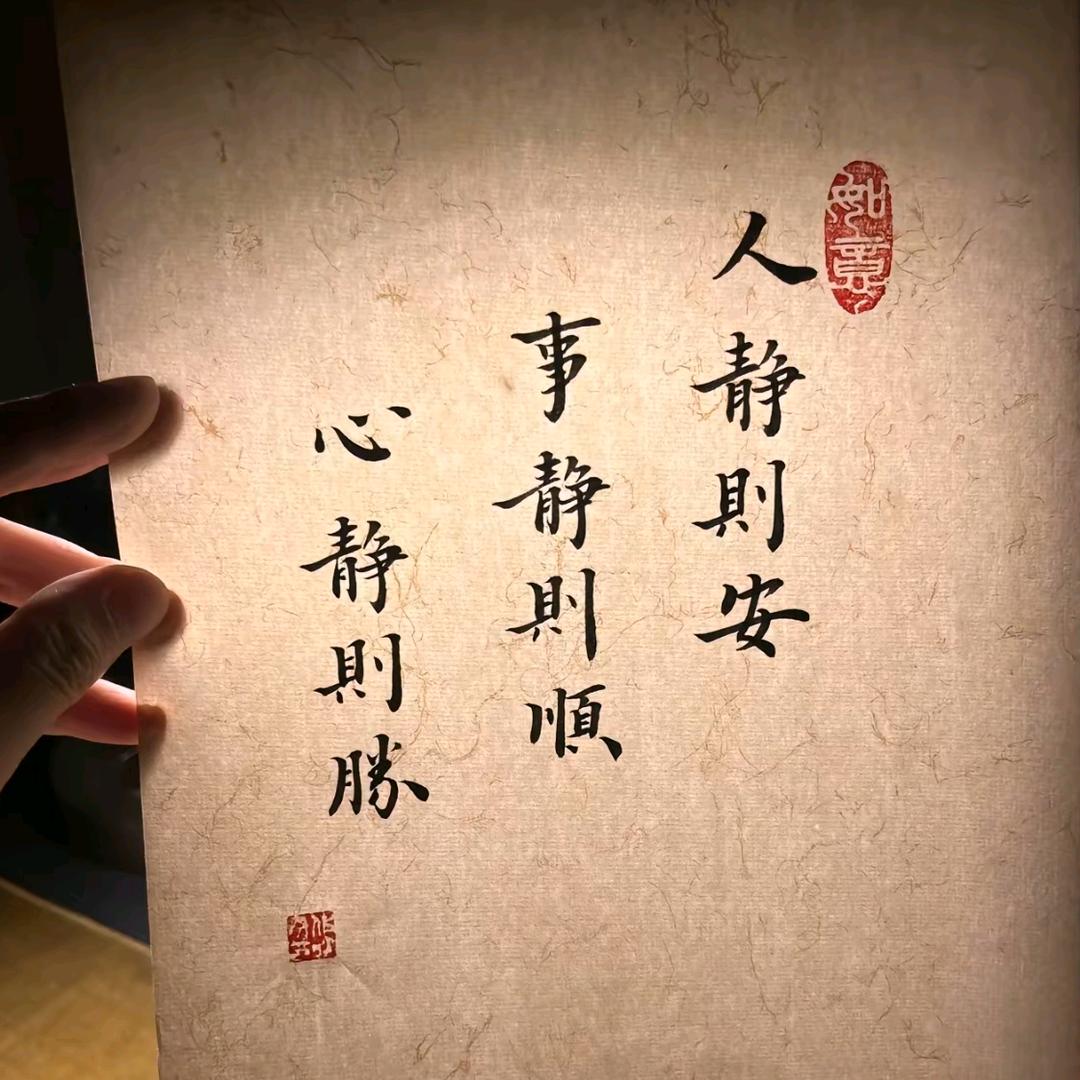 如意
人静則安
事静則順
心静則勝